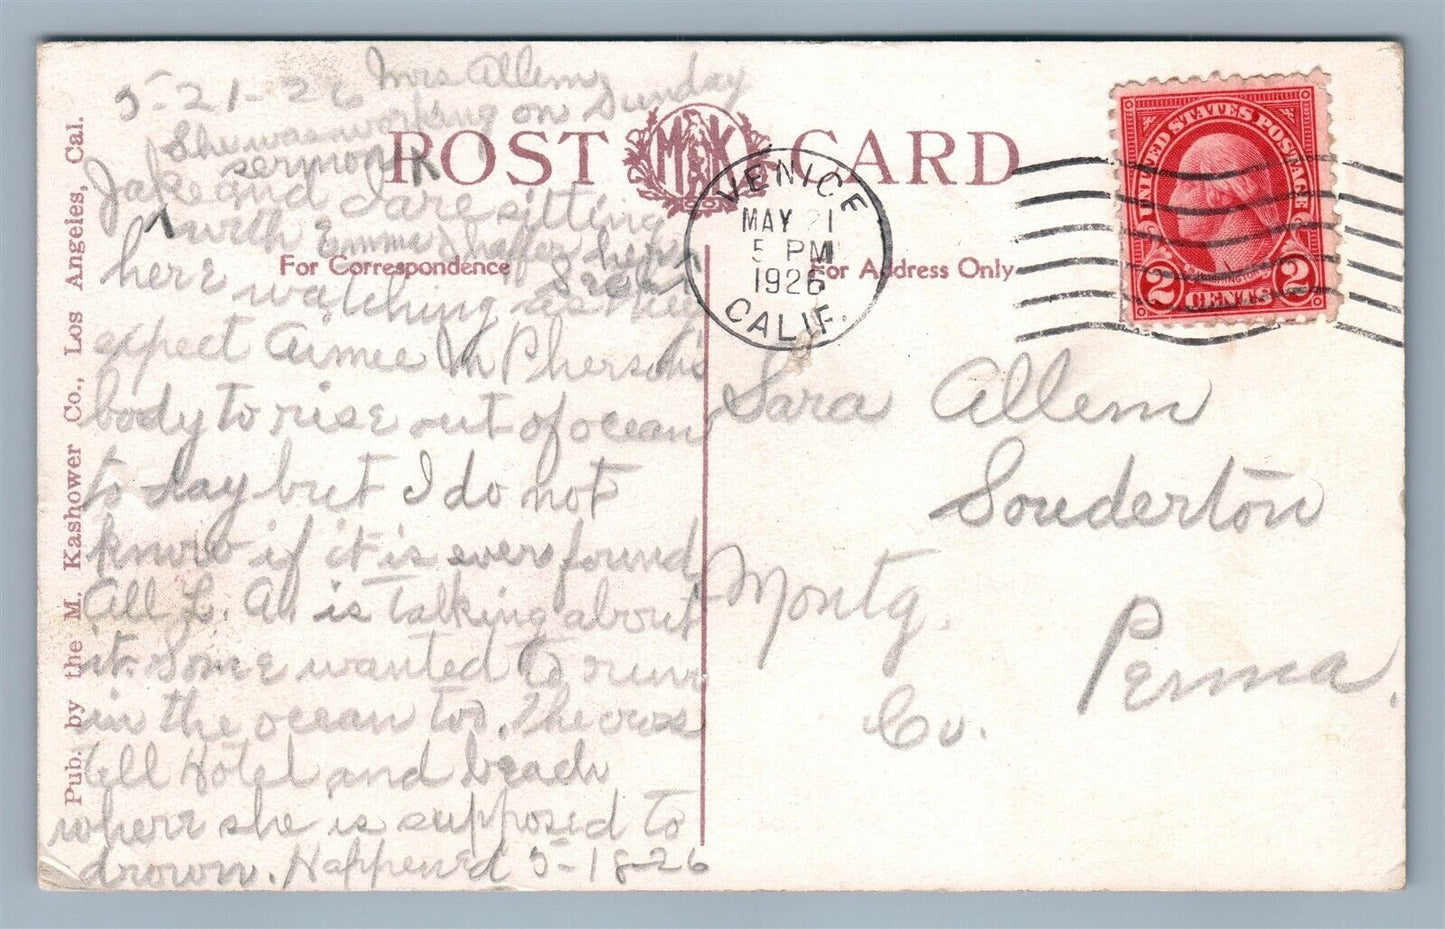 5-21-26 Mrs Allem
She was working on Sunday
sermon
POST MK CARD
Jake and I are sitting
with Emma
here watching
For Correspondence
For Address Only
expect Aimee McPherson's
body to rise out of ocean
to day but I do not
know if it is ever found
All L. A. is talking about
it. Some wanted to run
in the ocean too. The cross
Hotel and beach
where she is supposed to
drown. Happened 5-18-26
Pub. by the M. Kashower Co., Los Angeles, Cal.
VENICE
MAY 21
5 PM
1926
CALIF.
UNITED STATES POSTAGE
2 CENTS 2
Sara Allem
Souderton
Montg.
Co.
Penna.